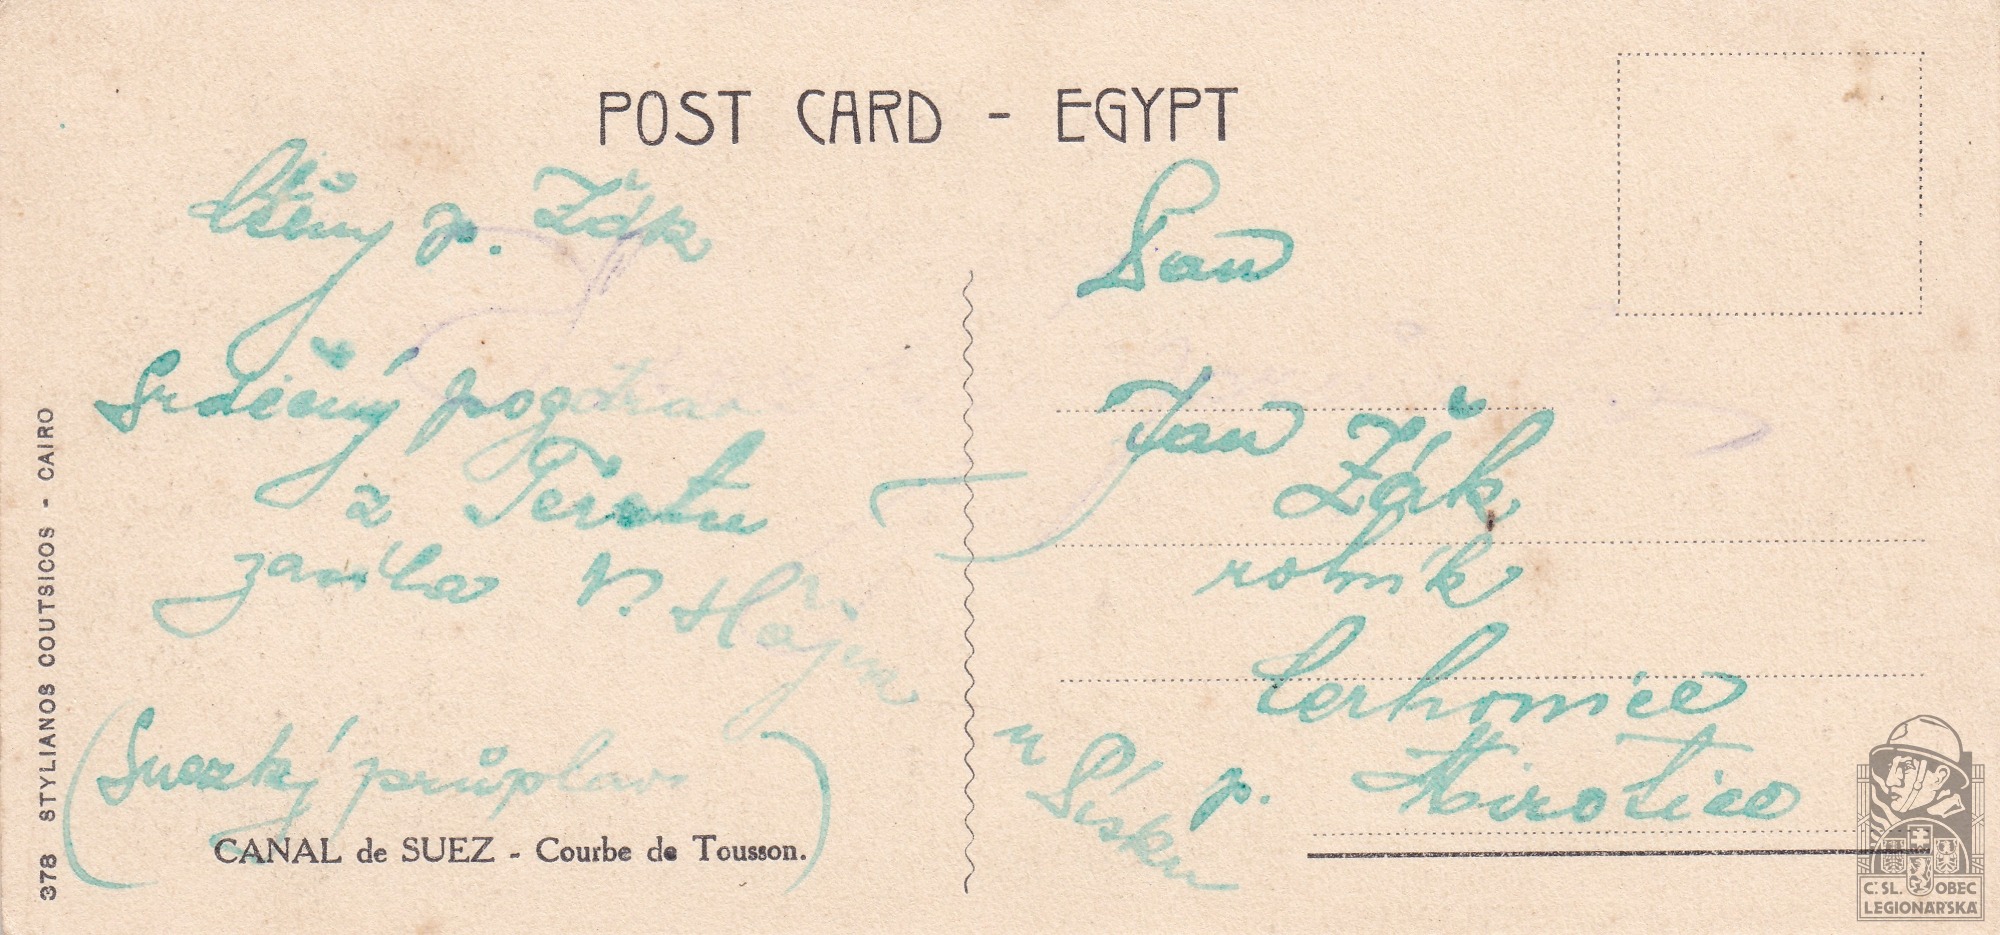 POST CARD - EGYPT
Ctěný p. Žák
Srdečný pozdrav
z Terstu
zasílá V. Hájek
(Suezký průplav)
CANAL de SUEZ - Courbe de Tousson.
378 STYLIANOS COUTSICOS - CAIRO
Pan
Jan Žák
rolník
Cerhonice
u Písku p. Mirotice
Č. SL. OBEC
LEGIONÁŘSKÁ